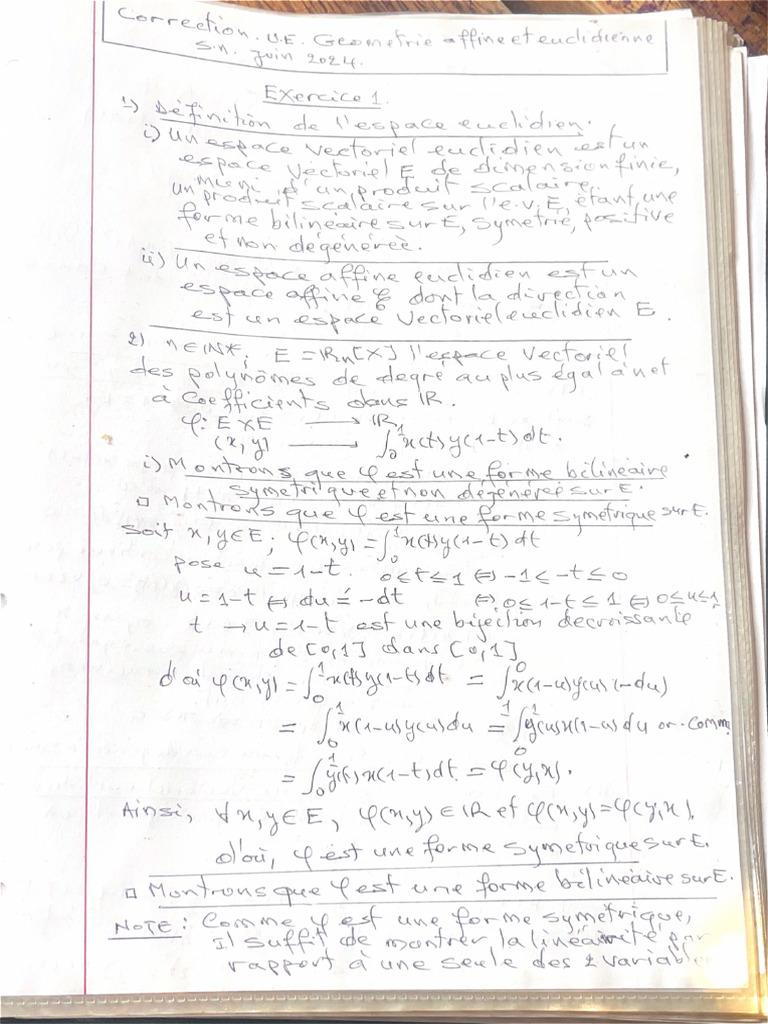 Correction. U.E. Geometrie affine et euclidienne
S.n. Juin 2024.
EXercice 1.
1) Définition de l'espace euclidien.
i) Un espace vectoriel euclidien est un
espace vectoriel E de dimension finie,
muni d'un produit scalaire.
un produit scalaire sur l'e.v. E, étant une
forme bilinéaire sur E, symetrie, positive
et non dégénérée.
ii) Un espace affine euclidien est un
espace affine ℰ dont la direction
est un espace vectoriel euclidien E.
2) n∈ℕ*, E = ℝn[X] l'espace vectoriel
des polynômes de degré au plus égal à n et
à coefficients dans ℝ.
φ: E×E → ℝ
(x, y) → ∫₀¹ x(t)y(1-t)dt.
i) Montrons que φ est une forme bilinéaire
symetrique et non dégénérée sur E.
□ Montrons que φ est une forme symetrique sur E.
Soit x,y∈E; φ(x,y) = ∫₀¹ x(t)y(1-t)dt
pose u=1-t. 0≤t≤1 ⇔ -1≤-t≤0
u=1-t ⇔ du=-dt ⇔ 0≤1-t≤1 ⇔ 0≤u≤1
t → u=1-t est une bijection decroissante
de [0,1] dans [0,1]
d'où φ(x,y) = ∫₀¹ x(t)y(1-t)dt = ∫₁⁰ x(1-u)y(u)(-du)
= ∫₀¹ x(1-u)y(u)du = ∫₀¹ y(u)x(1-u)du or. Comm
= ∫₀¹ y(t)x(1-t)dt = φ(y,x).
Ainsi, ∀x,y∈E, φ(x,y)∈ℝ et φ(x,y)=φ(y,x).
d'où, φ est une forme symetrique sur E.
□ Montrons que φ est une forme bilinéaire sur E.
NOTE: Comme φ est une forme symétrique,
Il suffit de montrer la linéarité par
rapport à une seule des 2 variables